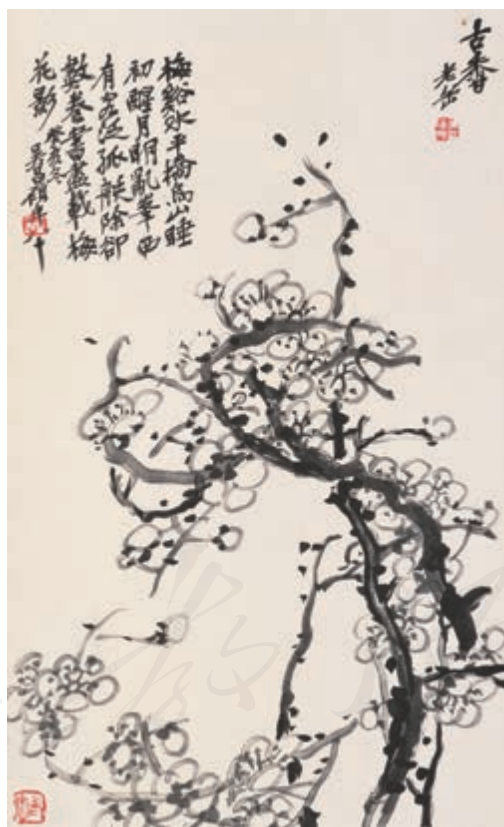 古香
老缶
梅谿水平橋烏山睡
初醒月明亂峯西
有客泛孤艇除卻
數卷書盡載梅
花影 癸亥冬
吳昌碩年八十